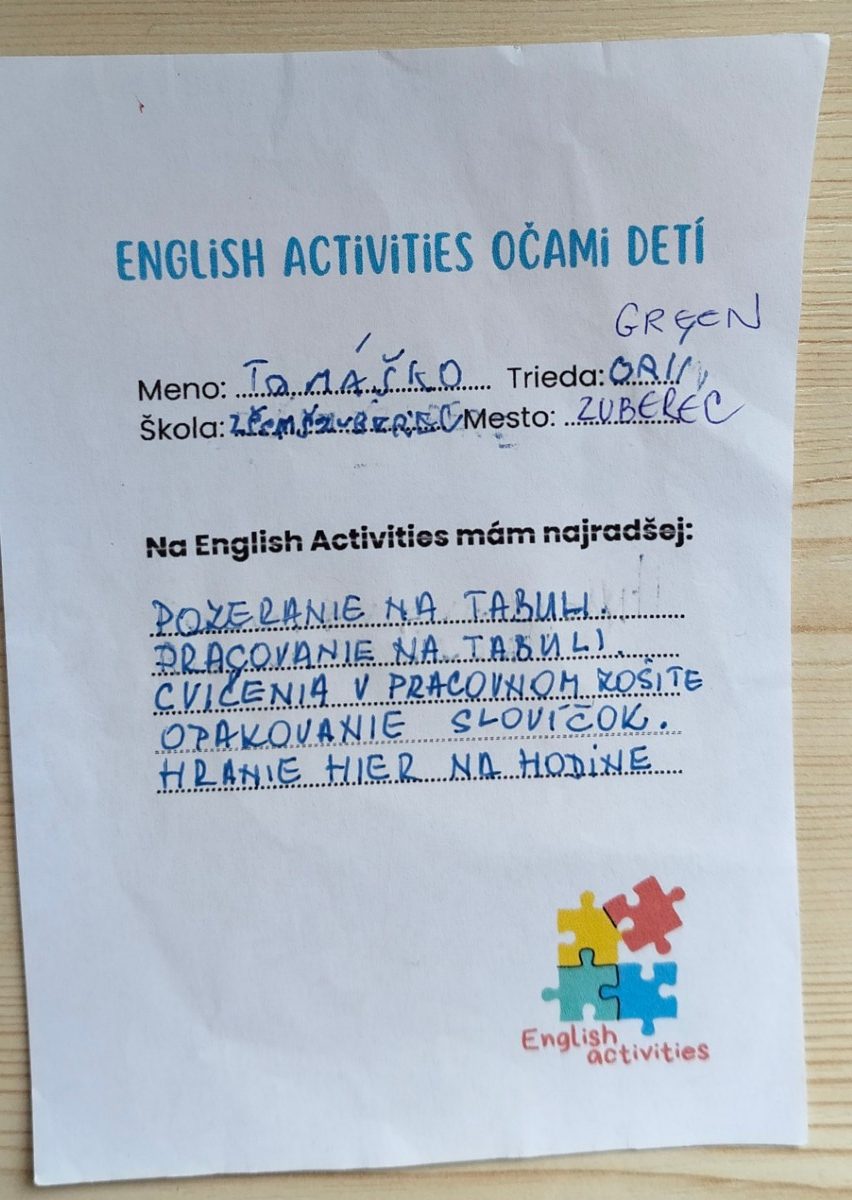 ENGLISH ACTIVITIES OČAMI DETÍ
GREEN
Meno: TOMÁŠKO Trieda:
Škola: ZŠsMŠ ZUBEREC Mesto: ZUBEREC
Na English Activities mám najradšej:
POZERANIE NA TABULI.
PRACOVANIE NA TABULI.
CVIČENIA V PRACOVNOM ZOŠITE
OPAKOVANIE SLOVÍČOK.
HRANIE HIER NA HODINE
English
activities